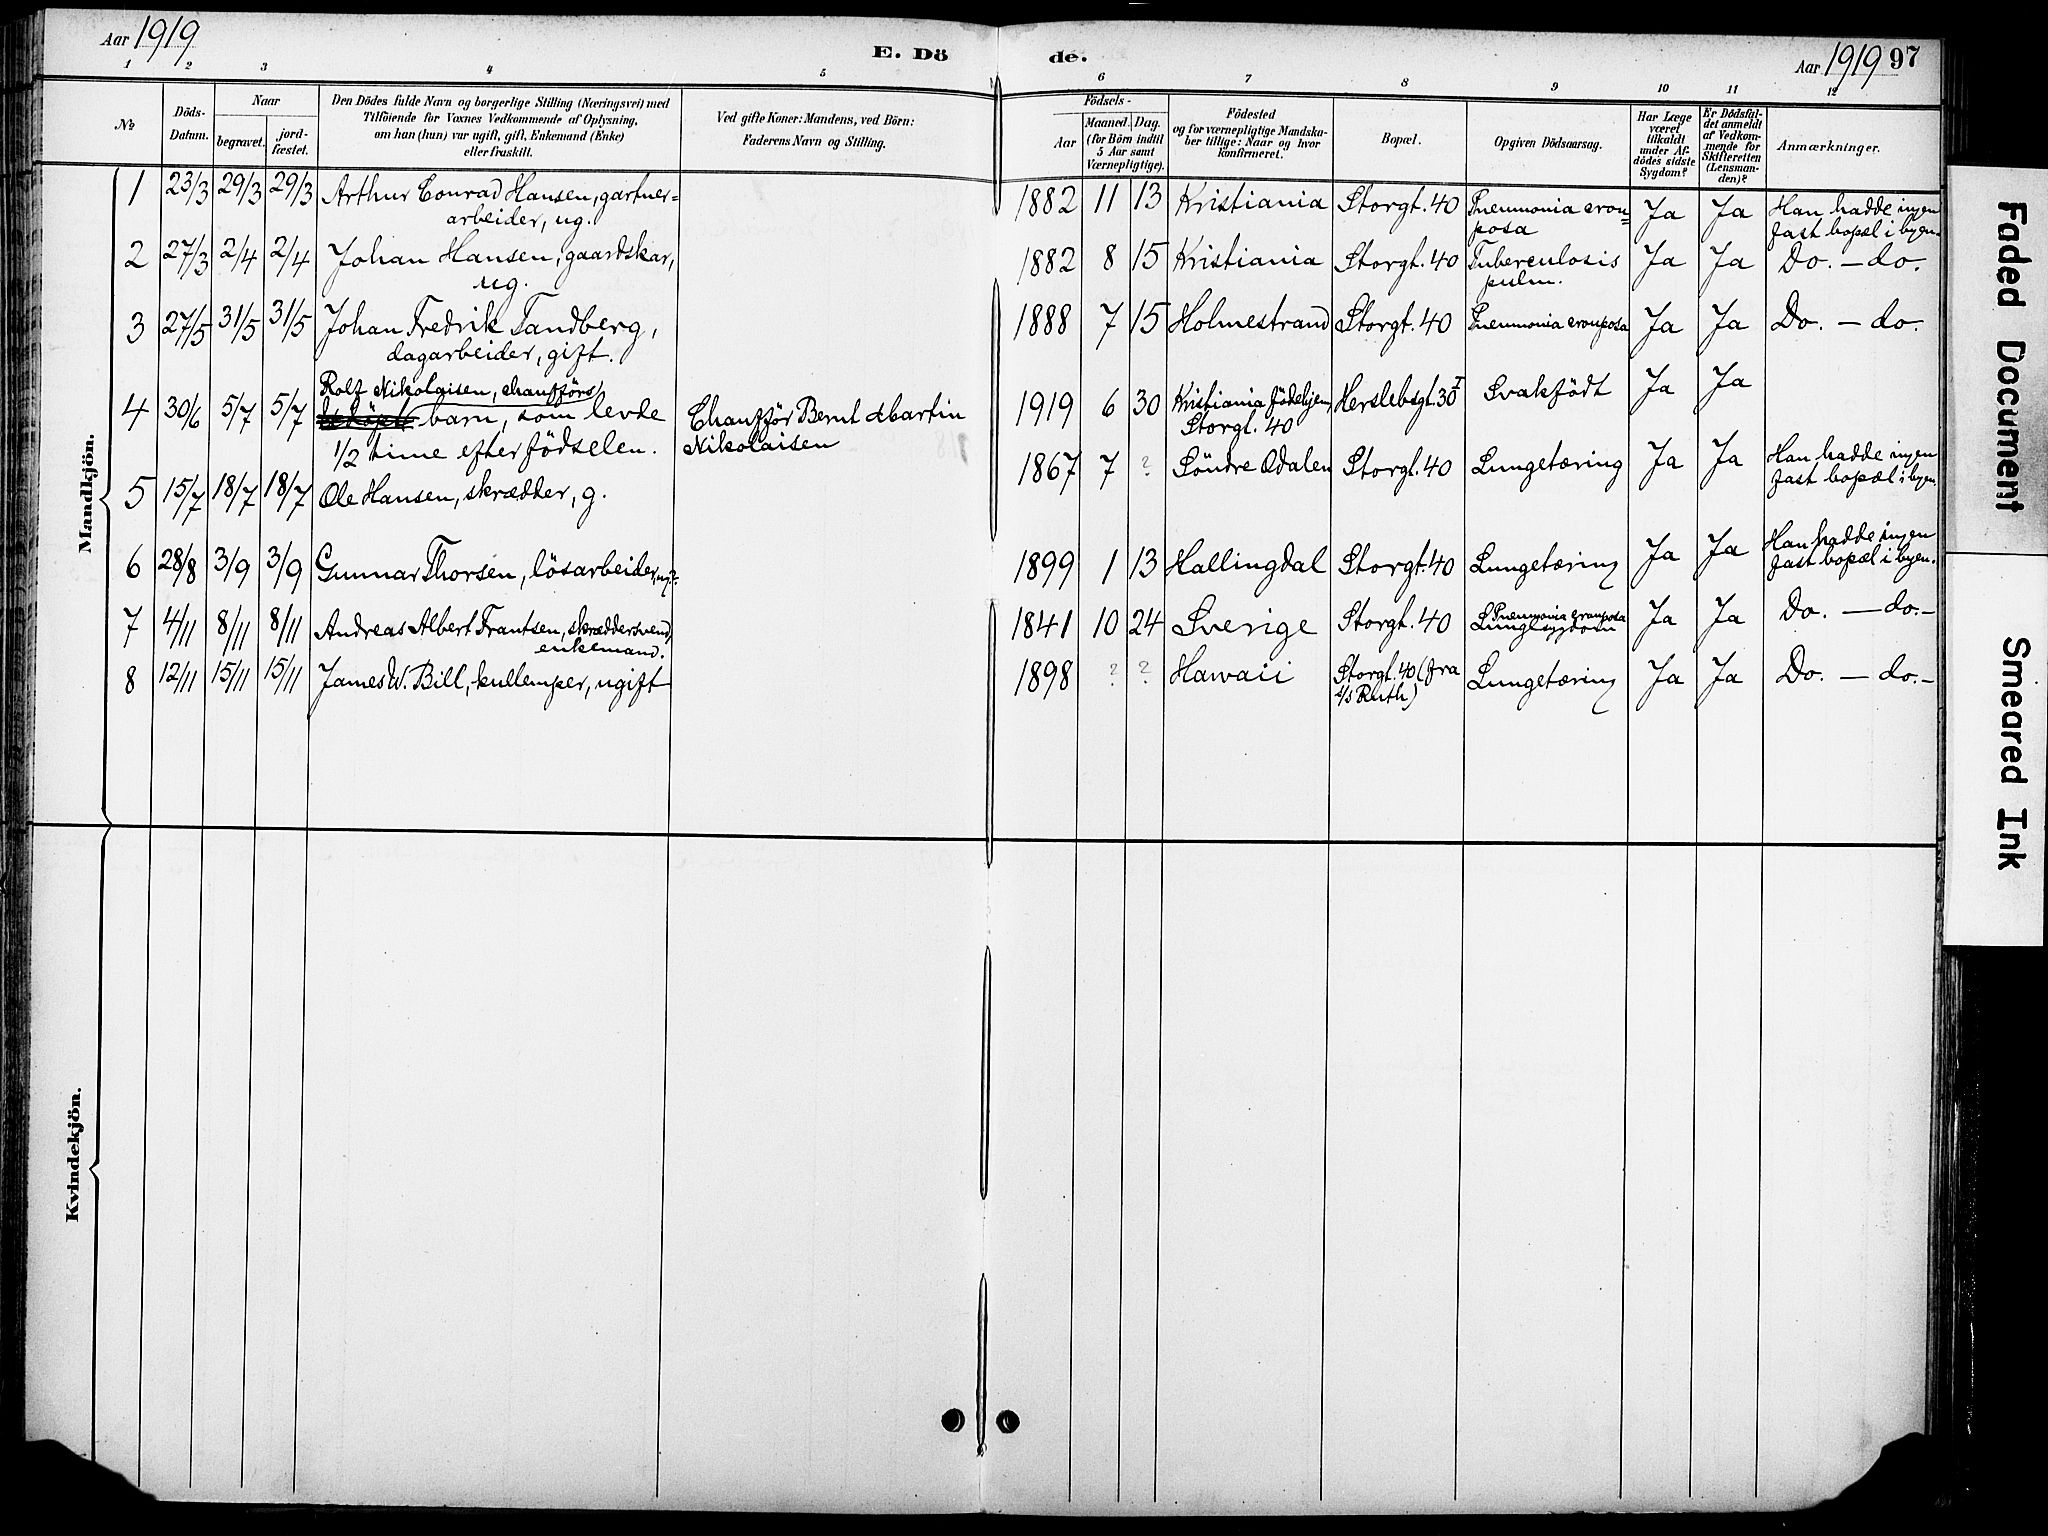 Aar 1919
E. Dö
de.
Aar 1919 97
1 2 3 4 5 6 7 8 9 10 11 12
№
Döds-
Datum.
Naar
begravet.
jord-
fæstet.
Den Dödes fulde Navn og borgerlige Stilling (Næringsvei) med
Tilföiende for Voxnes Vedkommende af Oplysning,
om han (hun) var ugift, gift, Enkemand (Enke)
eller fraskilt.
Ved gifte Koner: Mandens, ved Börn:
Faderens Navn og Stilling.
Födsels-
Aar
Maaned. Dag.
(for Börn indtil
5 Aar samt
Værnepligtige).
Födested
og for værnepligtige Mandska-
ber tillige: Naar og hvor
konfirmeret.
Bopæl.
Opgiven Dödsaarsag.
Har Læge
været
tilkaldt
under Af-
dödes sidste
Sygdom?
Er Dödsfal-
det anmeldt
af Vedkom-
mende for
Skifteretten
(Lensman-
den)?
Anmærkninger.
Mandkjön.
1 23/3 29/3 29/3 Arthur Conrad Hansen, gartner=
arbeider, ug.
1882 11 13 Kristiania Storgt. 40 Pneumonia crou=
posa
Ja Ja Han hadde ingen
fast bopæl i byen.
2 27/3 2/4 2/4 Johan Hansen, gaardskar,
ug.
1882 8 15 Kristiania Storgt. 40 Tuberculosis
pulm.
Ja Ja Do. — do.
3 27/5 31/5 31/5 Johan Fredrik Tandberg,
dagarbeider, gift.
1888 7 15 Holmestrand Storgt. 40 Pneumonia crouposa Ja Ja Do. — do.
4 30/6 5/7 5/7 Rolf Nikolaisen, chaufförs
barn, som levde
1/2 time efter födselen.
Chafför Bernt Martin
Nikolaisen
1919 6 30 Kristiania Födehjem,
Storgt. 40
Herslebsgt. 30 I Svakfödt Ja Ja
5 15/7 18/7 18/7 Ole Hansen, skrædder, g.
1867 7 ? Söndre Odalen Storgt. 40 Lungetæring Ja Ja Han hadde ingen
fast bopæl i byen.
6 28/8 3/9 3/9 Gunnar Thorsen, lösarbeider, ug?
1899 1 13 Hallingdal Storgt. 40 Lungetæring Ja Ja Han hadde ingen
fast bopæl i byen.
7 4/11 8/11 8/11 Andreas Albert Frantsen, skræddersvend,
enkemand.
1841 10 24 Sverige Storgt. 40 Pneumonia crouposa
Lungesygdom
Ja Ja Do. — do.-
8 12/11 15/11 15/11 James W. Bill, kullemper, ugift
1898 ? ? Hawaii Storgt. 40 (fra
s/s Ruth)
Lungetæring Ja Ja Do. — do.-
Kvindekjön.
Faded Document
Smeared Ink